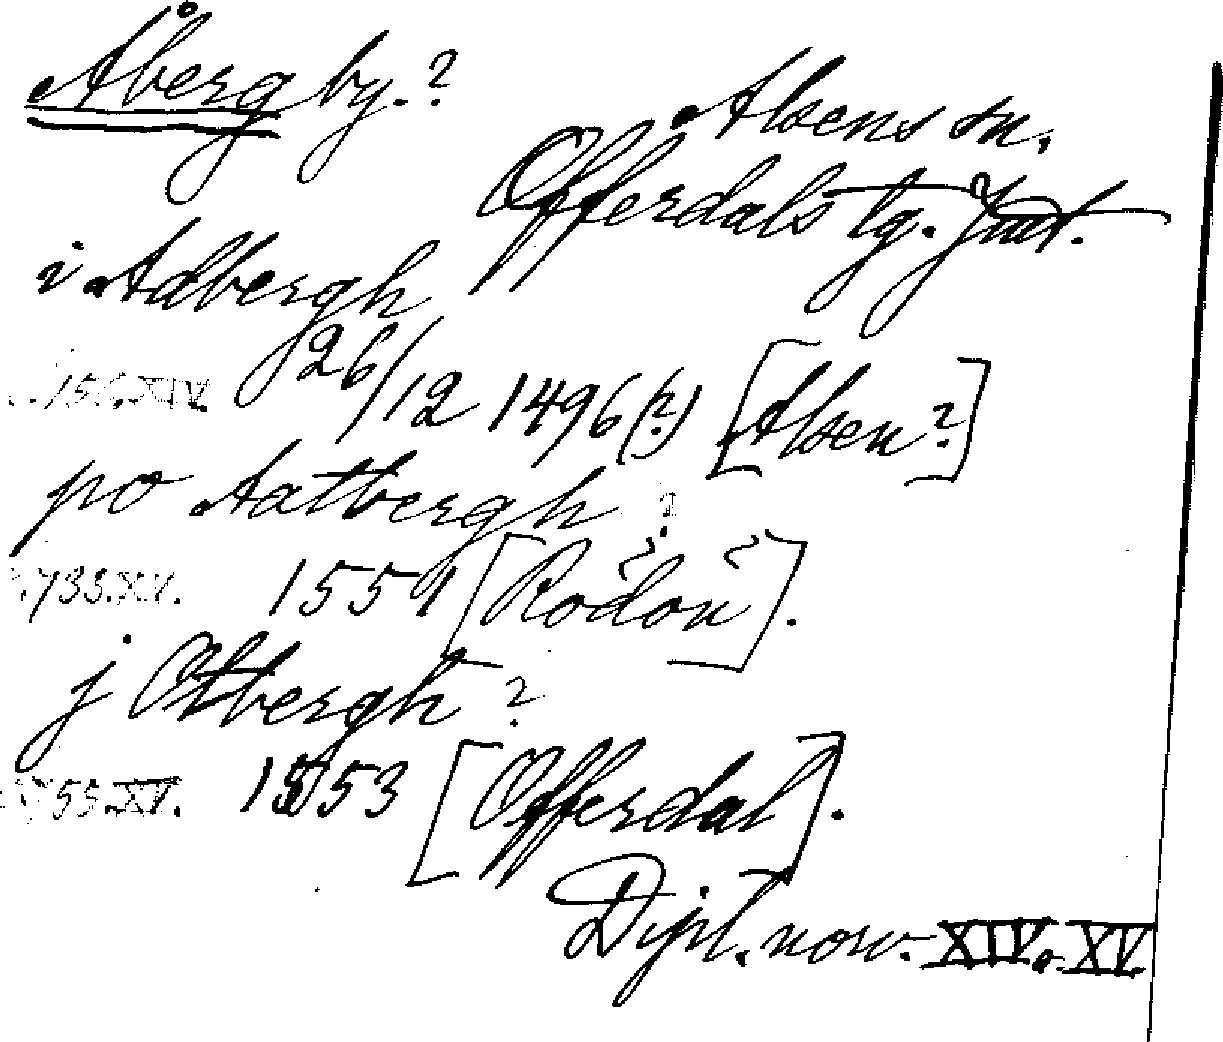 Åberg by.?
Alsens sn.
Offerdals tg. Jmt.
i Adbergh
156.XIV. 26/12 1496(?) [Alsen?]
po Aatbergh?
733.XV. 1551 [Rödön].
j Otbergh?
755.XV. 1553 [Offerdal].
Dipl. norv. XIV. XV